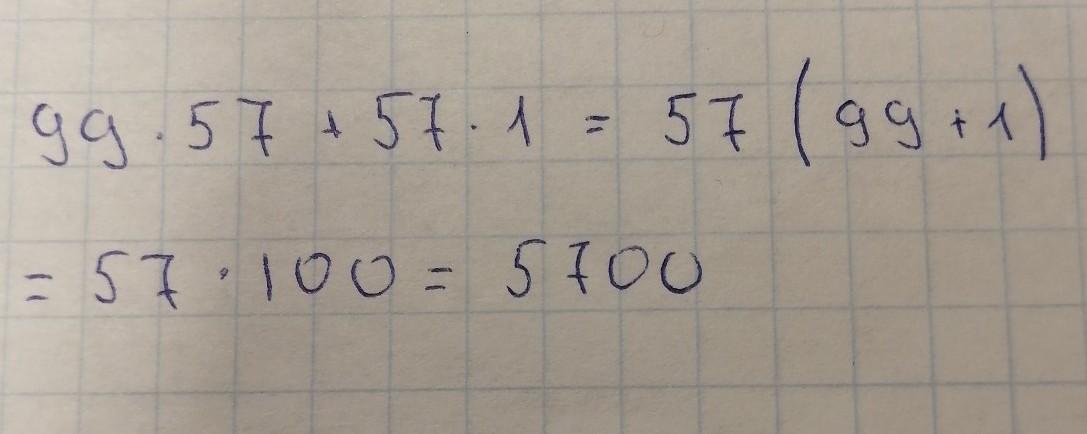 99 · 57 + 57 · 1 = 57 (99 + 1)
= 57 · 100 = 5700